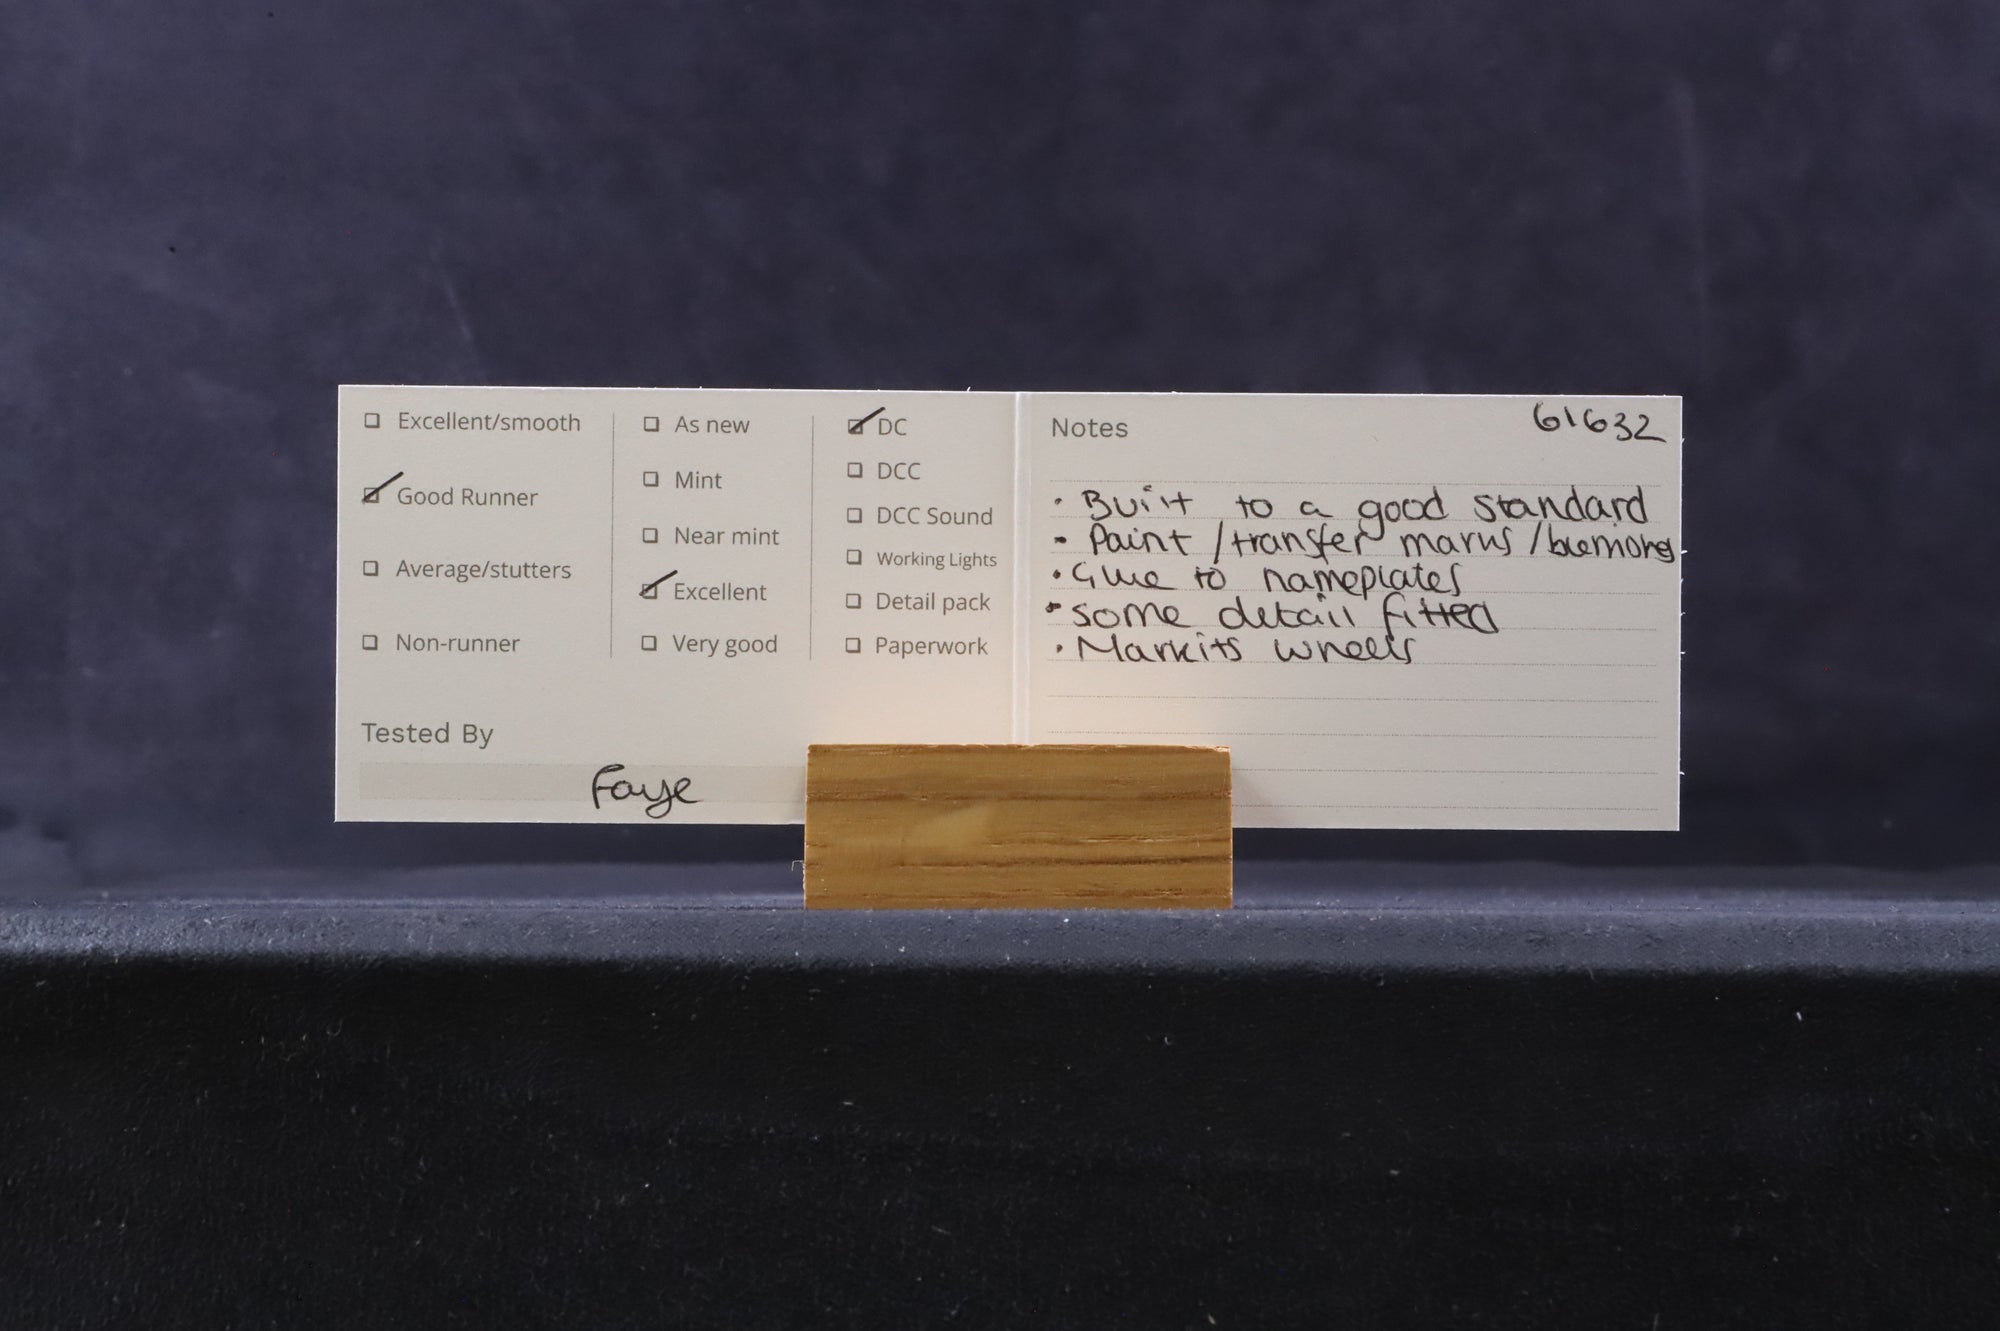 ☐ Excellent/smooth
☑ Good Runner
☐ Average/stutters
☐ Non-runner
☐ As new
☐ Mint
☐ Near mint
☑ Excellent
☐ Very good
☑ DC
☐ DCC
☐ DCC Sound
☐ Working Lights
☐ Detail pack
☐ Paperwork
Tested By
Faye
Notes
61632
• Built to a good standard
• Paint / transfer marks /
• Glue to nameplates
• some detail fitted
• Markits wheels